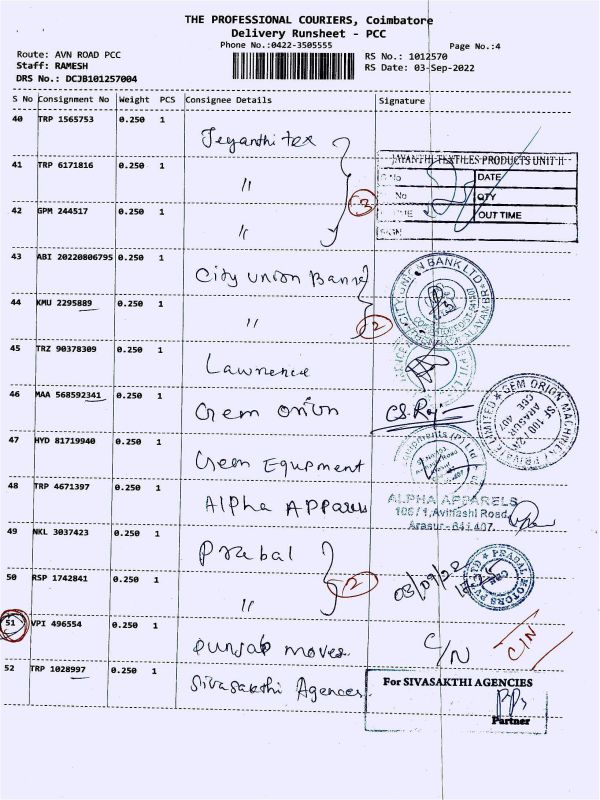 THE PROFESSIONAL COURIERS, Coimbatore
Delivery Runsheet - PCC
Phone No.:0422-3505555
Page No.:4
Route: AVN ROAD PCC
Staff: RAMESH
DRS No.: DCJB101257004
RS No.: 1012570
RS Date: 03-Sep-2022
S No Consignment No Weight PCS Consignee Details Signature
40 TRP 1565753 0.250 1 Jeyanthi tex
JAYANTHI TEXTILES PRODUCTS UNIT-II
41 TRP 6171816 0.250 1 "
No DATE
No QTY
42 GPM 244517 0.250 1 " 3
OUT TIME
SIGN
43 ABI 20220806795 0.250 1 City Union Bank
CITY UNION BANK LTD
44 KMU 2295889 0.250 1 " 2
45 TRZ 90378309 0.250 1 Lawrence
46 MAA 568592341 0.250 1 Gem Orion
CS. Raj
GEM ORION MACHINERY PRIVATE LIMITED
SF 100/2A
ARASUR
CBE 407
47 HYD 81719940 0.250 1 Green Equpment
Equipments (P) Ltd
48 TRP 4671397 0.250 1 Alpha Apparels
ALPHA APPARELS
106/1, Avinashi Road,
Arasur-641 407.
49 NKL 3037423 0.250 1 Prabal
PRABAL MOTORS PVT LTD
50 RSP 1742841 0.250 1 " 2
03/09/22
51 VPI 496554 0.250 1 Punjab moves
C/N C/N
52 TRP 1028997 0.250 1 Sivasakthi Agences
For SIVASAKTHI AGENCIES
Partner